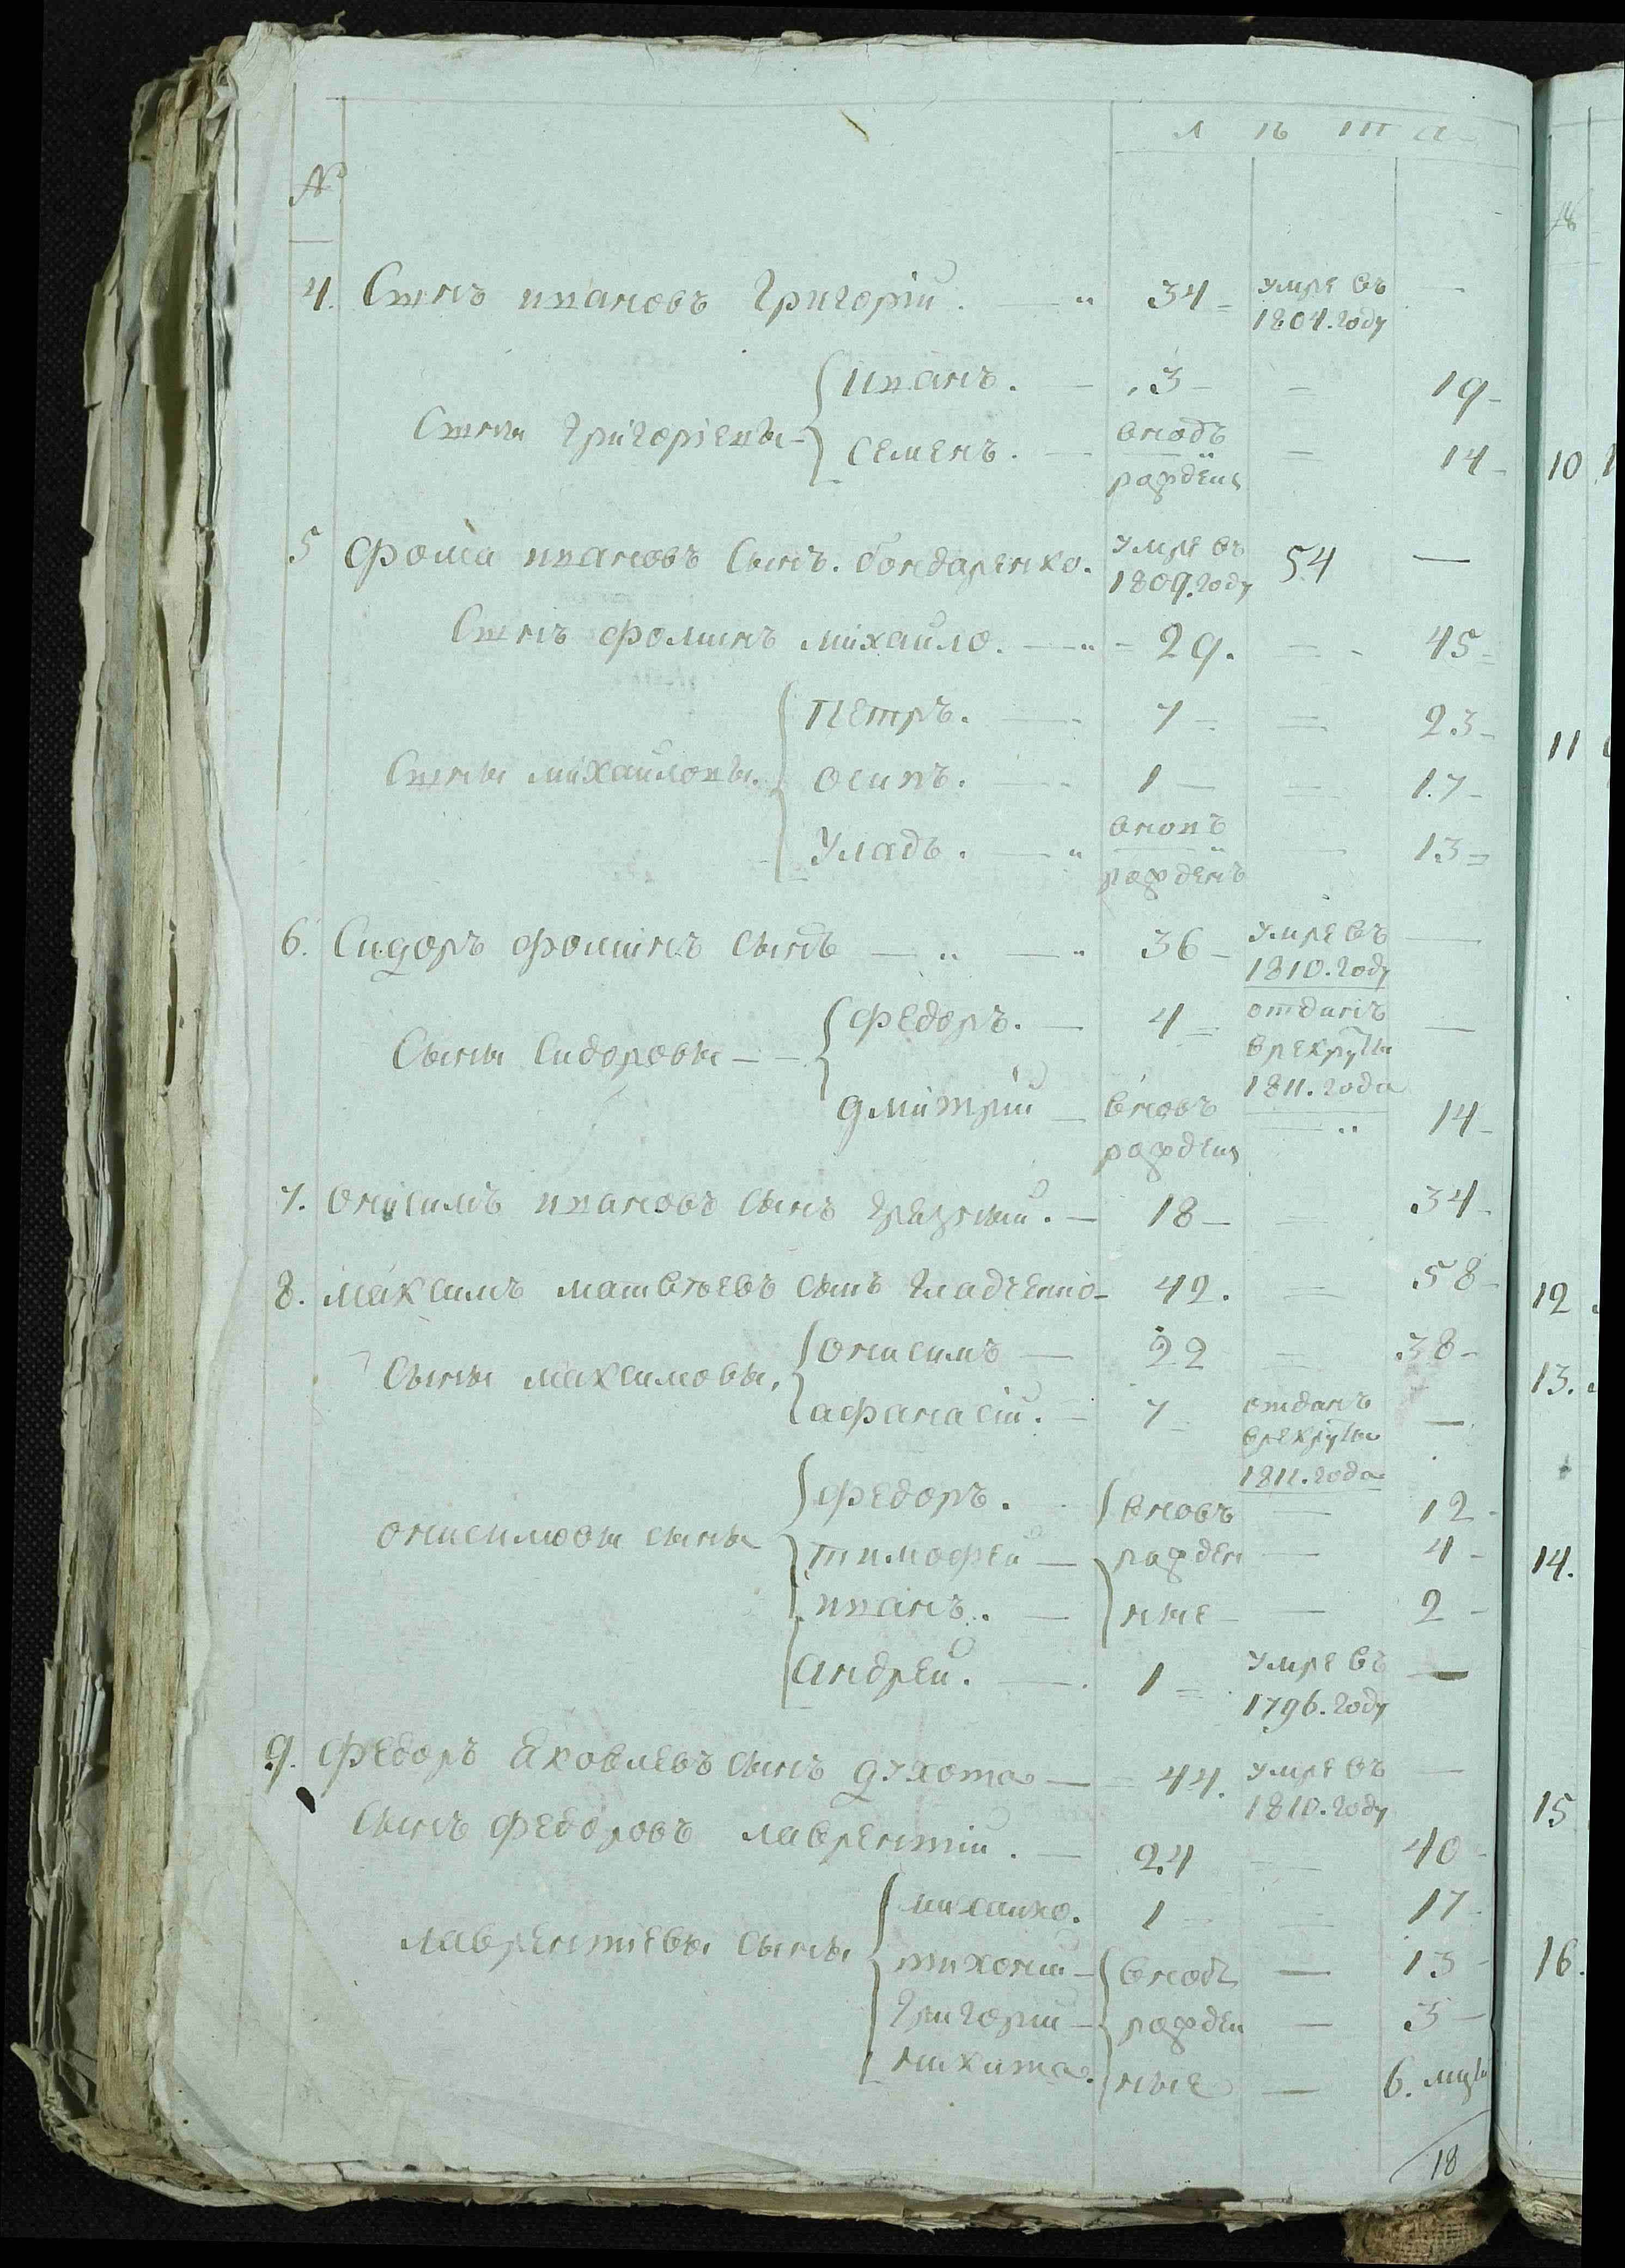 № лѣта
4. Сынъ ивановъ Григорій. 34 умре въ 1804. году —
Сыны Григоріевы
иванъ. 3 — 19
семенъ. вновь рожден — 14
5 Фома ивановъ Сынъ. бондаренко. умре въ 1809. году 54 —
Сынъ фоминъ михайло. 29. — 45
Сыны михайловы.
петръ. 7 — 23
осипъ. 1 — 17
уладъ. вновъ рожденъ — 13
6. Сидоръ фоминъ сынъ 36 умре въ 1810. году —
Сыны сидоровы
федоръ. 4 отданъ в рекруты 1811. года —
дмитрий вновъ рожден — 14
7. онисимъ ивановъ сынъ грезный. 18 — 34
8. максимъ матвѣевъ сынъ гладченко 42. — 58
Сыны максимовы,
онисимъ 22 — 38
афанасій. 7 отданъ в рекруты 1811. года —
онисимовы сыны
федоръ. вновъ — 12
тимофей рожден — 4
иванъ. ные — 2
андрей. 1 умре въ 1796. году —
9. федоръ яковлевъ сынъ духота 44. умре въ 1810. году —
сынъ федоровъ лаврентий. 24 — 40
лаврентиевы сыны
михайло. 1 — 17
тихоний вновь — 13
григорий рожден — 3
никита. ные — 6. мцы
18
10
11
12
13.
14.
15
16.